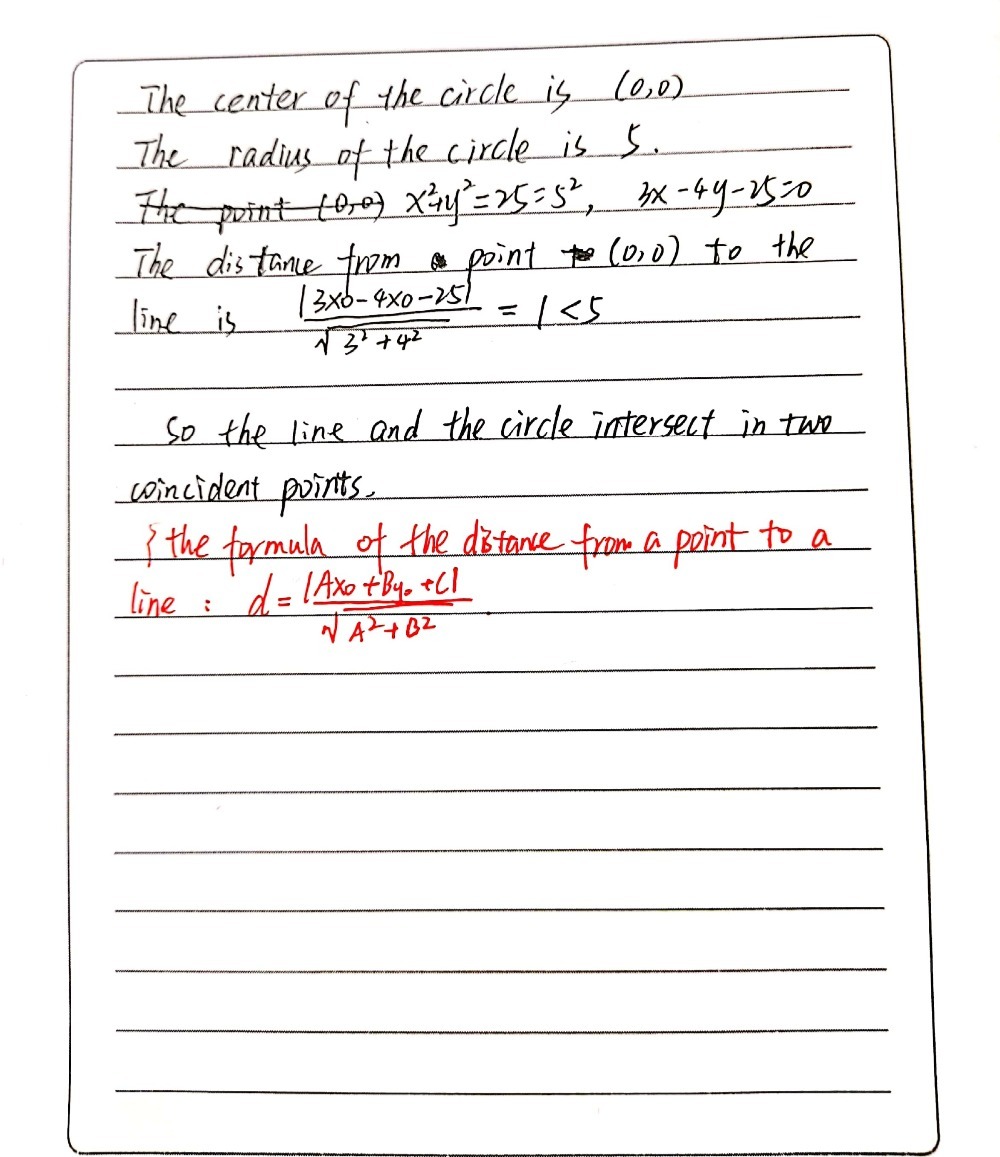 The center of the circle is (0,0)
The radius of the circle is 5.
The point (0,0) x²+y²=25=5², 3x-4y-25=0
The distance from a point to (0,0) to the
line is |3×0-4×0-25| / √3²+4² = 1<5
So the line and the circle intersect in two
coincident points.
{ the formula of the distance from a point to a
line : d = |Ax₀+By₀+C| / √A²+B²